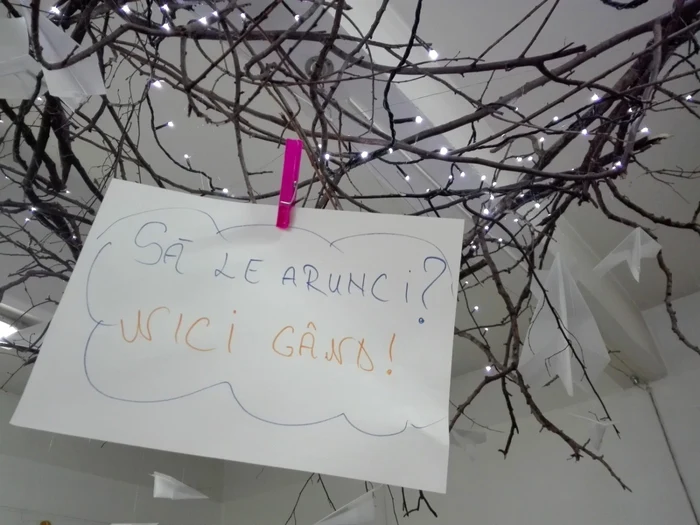 SĂ LE ARUNCI?
NICI GÂND!